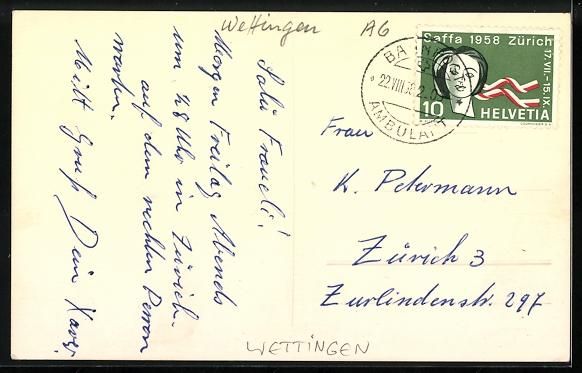 Wettingen AG
Salü Fraueli!
Morgen Freitag Abends
um ½8 Uhr in Zürich.
auf dem rechten Perron
warten.
Mitt Gruß Dein Xaver.
Saffa 1958 Zürich
17.VII.-15.IX.
10 HELVETIA
22.VIII.58
AMBULANT
Frau
K. Petermann
Zürich 3
Zurlindenstr. 297
WETTINGEN